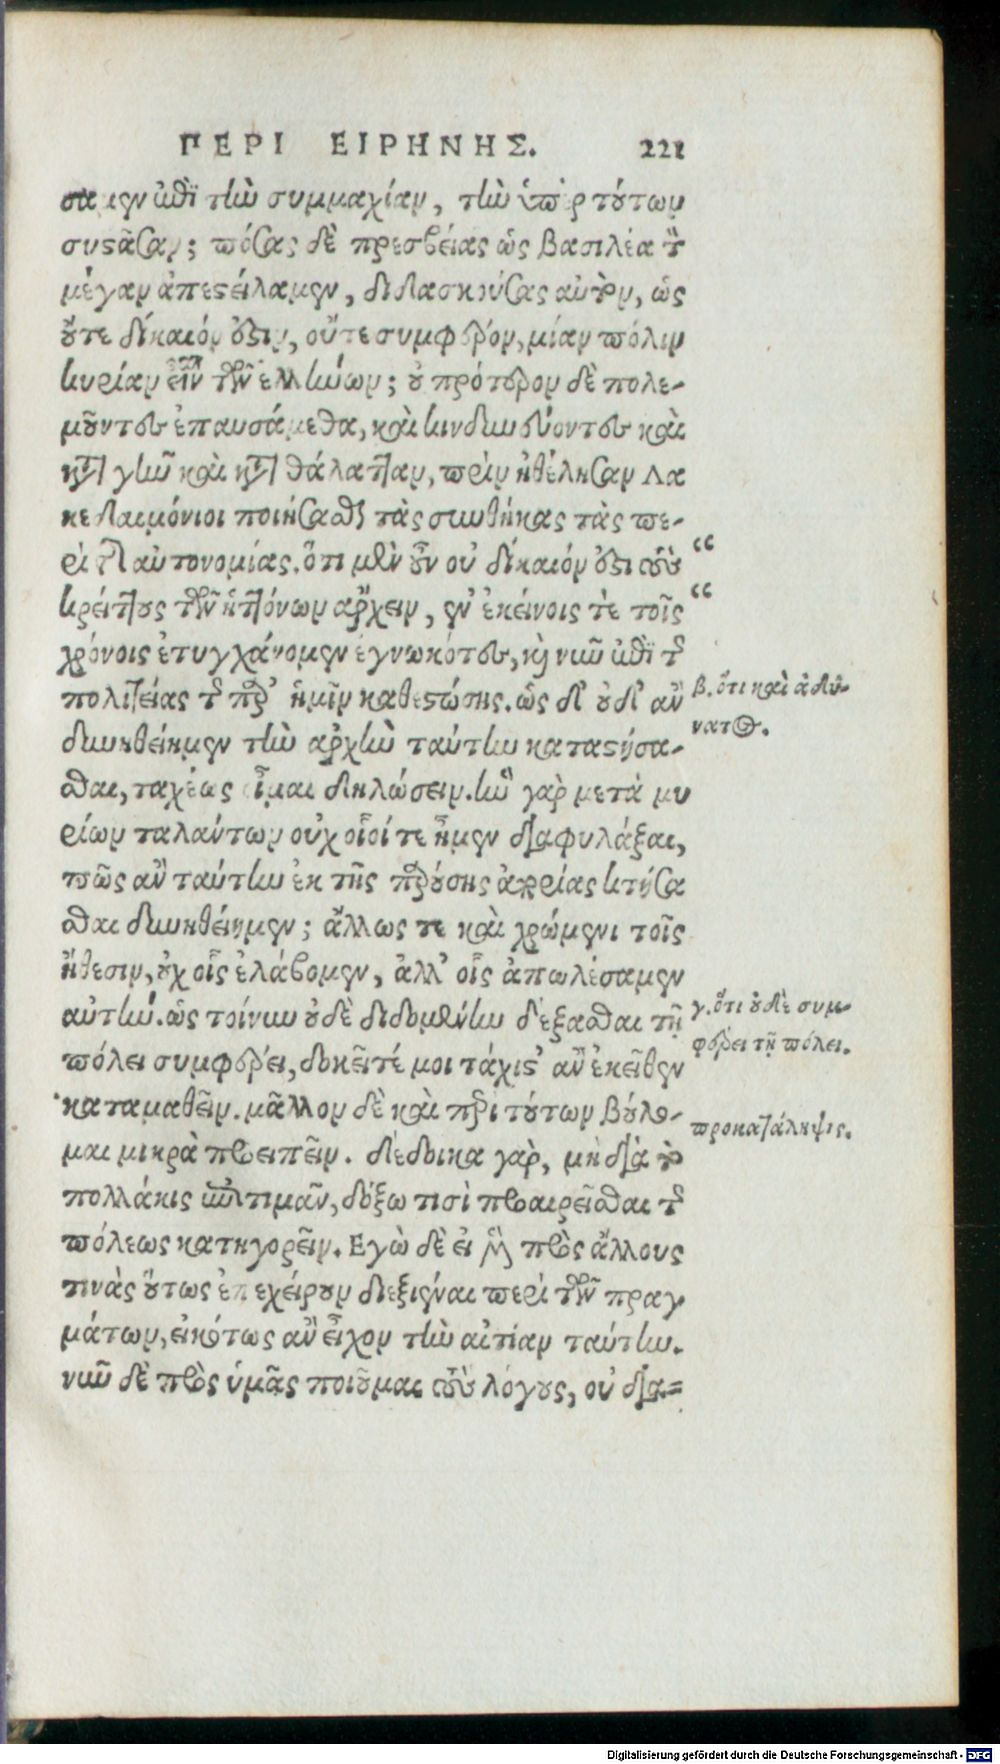 ΠΕΡΙ ΕΙΡΗΝΗΣ. 221
σαμεν ἐπὶ τὴν συμμαχίαν, τὴν ὑπὲρ τούτων
συστᾶσαν; πόσας δὲ πρεσβείας ὡς βασιλέα τὸν
μέγαν ἀπεστείλαμεν, διδασκούσας αὐτὸν, ὡς
οὔτε δίκαιόν ἐστιν, οὔτε συμφέρον, μίαν πόλιν
κυρίαν εἶναι τῶν ἑλλήνων; οὐ πρότερον δὲ πολε-
μοῦντες ἐπαυσάμεθα, καὶ κινδυνεύοντες καὶ
κατὰ γῆν καὶ κατὰ θάλατταν, πρὶν ἠθέλησαν Λα
κεδαιμόνιοι ποιήσασθαι τὰς συνθήκας τὰς πε-
ρὶ τῆς αὐτονομίας. ὅτι μὲν οὖν οὐ δίκαιόν ἐστι τοὺς “
κρείττους τῶν ἡττόνων ἄρχειν, ἐν ἐκείνοις τε τοῖς “
χρόνοις ἐτυγχάνομεν ἐγνωκότες, καὶ νῦν ἐπὶ τῆς
πολιτείας τῆς παρ’ ἡμῖν καθεστώσης. ὡς δ’ οὐδ’ ἂν
β. ὅτι καὶ ἀδύ-
νατος.
δυνηθείημεν τὴν ἀρχὴν ταύτην καταστήσα-
σθαι, ταχέως οἶμαι δηλώσειν. ἣν γὰρ μετὰ μυ
ρίων ταλάντων οὐχ οἷοί τε ἦμεν διαφυλάξαι,
πῶς ἂν ταύτην ἐκ τῆς παρούσης ἀπορίας κτήσα
σθαι δυνηθείημεν; ἄλλως τε καὶ χρώμενοι τοῖς
ἤθεσιν, οὐχ οἷς ἐλάβομεν, ἀλλ’ οἷς ἀπωλέσαμεν
αὐτήν. ὡς τοίνυν οὐδὲ διδομένην δέξασθαι τῇ
γ. ὅτι οὐδὲ συμ-
φέρει τῇ πόλει.
πόλει συμφέρει, δοκεῖτέ μοι τάχιστ’ ἂν ἐκεῖθεν
καταμαθεῖν. μᾶλλον δὲ καὶ περὶ τούτων βούλο-
προκατάληψις.
μαι μικρὰ προειπεῖν. δέδοικα γὰρ, μὴ διὰ τὸ
πολλάκις ἐπιτιμᾶν, δόξω τισὶ προαιρεῖσθαι τῆς
πόλεως κατηγορεῖν. Εγὼ δὲ εἰ μὲν πρὸς ἄλλους
τινὰς οὕτως ἐπεχείρουν διεξιέναι περὶ τῶν πραγ
μάτων, εἰκότως ἂν εἶχον τὴν αἰτίαν ταύτην.
νῦν δὲ πρὸς ὑμᾶς ποιοῦμαι τοὺς λόγους, οὐ δια-
Digitalisierung gefördert durch die Deutsche Forschungsgemeinschaft - DFG